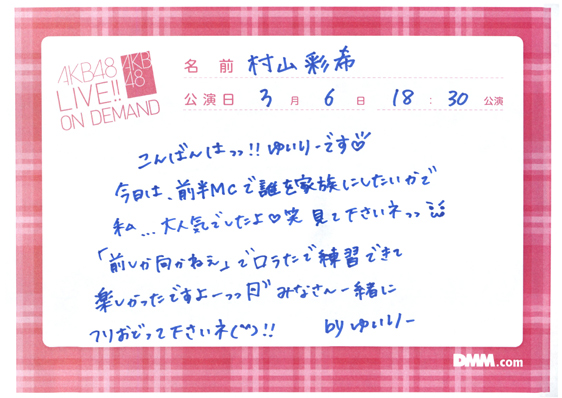 AKB48
LIVE!!
ON DEMAND
AKB
48
名前 村山彩希
公演日 3月6日 18:30公演
こんばんはっっ!!ゆいりーです♡
今日は、前半MCで誰を家族にしたいかで
私...大人気でしたよ♡笑 見て下さいネっっ
「前しか向かねえ」で口ラたで練習できて
楽しかったですよーっっ みなさん一緒に
フリおどって下さいネ(^^)!! byゆいりー
DMM.com